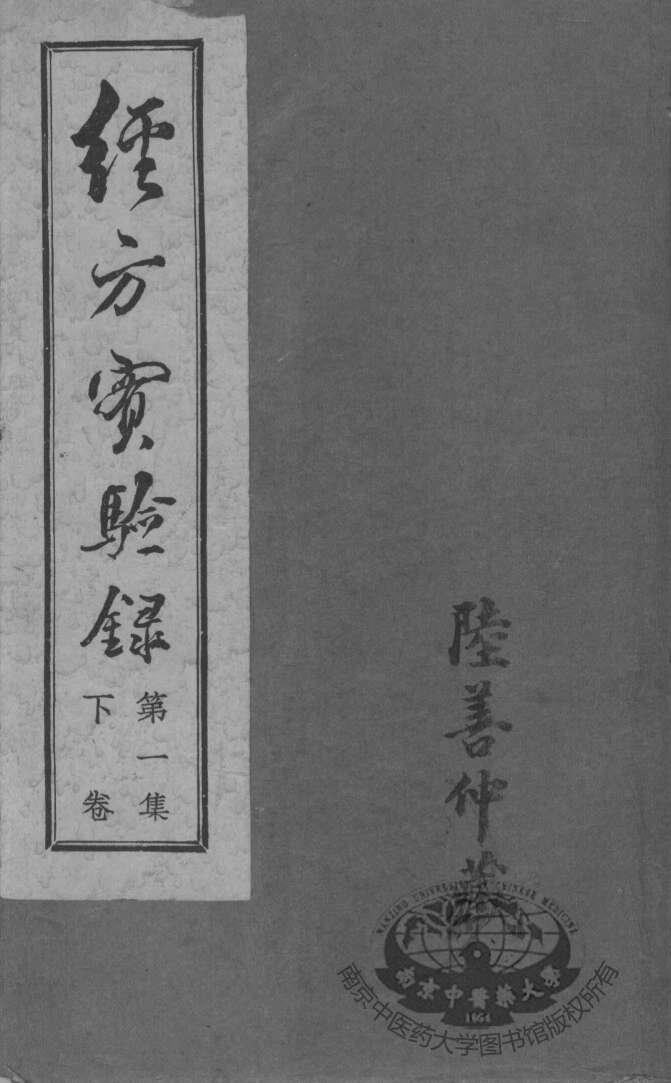 經方實驗録
第一集
下卷
陸善仲
NANJING UNIVERSITY OF CHINESE MEDICINE
南京中醫藥大學
1954
南京中医药大学图书馆版权所有